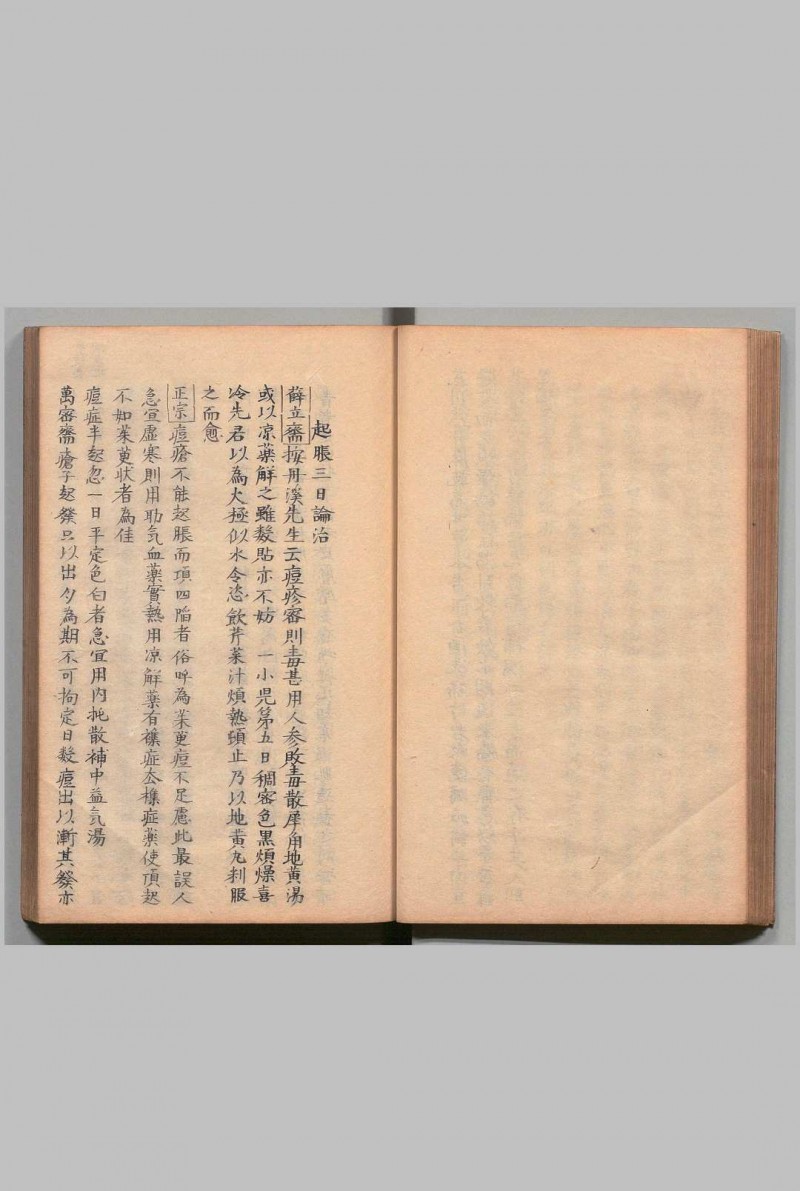 起脹三日論治
薛立齋按丹溪先生云痘疹密則毒甚用人参敗毒散犀角地黄湯
或以凉藥解之雖數貼亦不妨 一小児第五日稠密色黒煩燥喜
冷先君以為火極似水令恣飲芹菜汁煩熱頓止乃以地黄丸料服
之而愈
正宗痘瘡不能起脹而頂四陥者俗呼為茱萸痘不足慮此最誤人
急宜虚寒則用助気血藥實熱用凉解藥有襍症去襍症藥使頂起
不如茱萸状者為佳
痘症半起忽一日平定色白者急宜用内托散補中益気湯
萬密齋瘡子起發只以出夕為期不可拘定日数痘出以漸其發亦